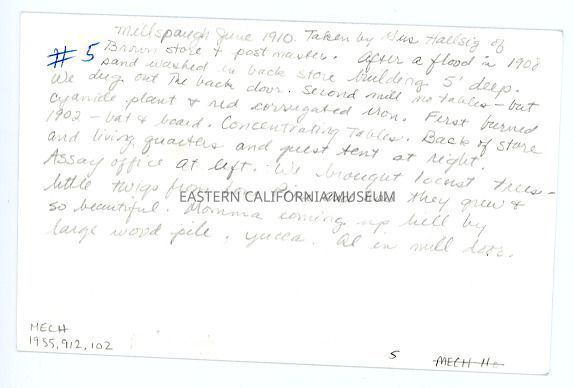 Millspaugh June 1910. Taken by Mrs Hallsig of
# 5 Brown store & post master. After a flood in 1908
sand washed in back store building 5' deep.
We dug out the back door. Second mill no tables - but
cyanide plant & red corrugated iron. First burned
1902 - bat & board. Concentrating Tables. Back of store
and living quarters and guest tent at right.
Assay office at left. We brought locust trees -
little twigs from they grew &
so beautiful. Momma coming up hill by
large wood pile, yucca. Al in mill door.
EASTERN CALIFORNIA MUSEUM
MECH
1955,912,102
5 MECH 11